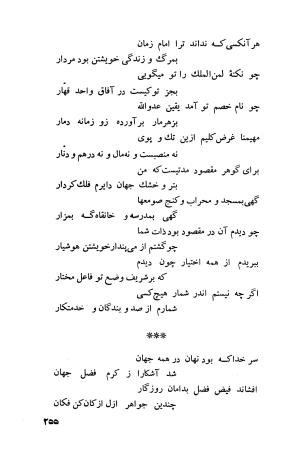 هر آنکسی‌که نداند ترا امام زمان
بمرگ و زندگی خویشتن بود مردار
چو نکتهٔ لمن‌الملك را تو میگویی
بجز تو کیست در آفاق واحد قهّار
چو نام خصم تو آمد یقین عدوالله
بزهرمار برآورده زو زمانه دمار
مهیمنا غرض کلیم ازین تك و پوی
نه منصبست و نه‌مال و نه درهم و دنّار
برای گوهر مقصود مدتیست که من
بتر و خشك جهان دایرم فلك کردار
گهی بمسجد و محراب و کنج صومعها
گهی بمدرسه و خانقاه‌گـه بمزار
چو دیدم آن در مقصود بود ذات شما
چو گشتم از می‌پندار خویشتن هوشیار
ببریدم از همه اختیار چون دیدم
که بر شریف وضع تو فاعل مختار
اگر چه نیستم اندر شمار هیچ‌کسی
شمارم از صد و بندگان و خدمتکار
***
سر خدا که بود نهان در همه جهان
شد آشکارا ز کرم فضل جهان
افشاند فیض فضل بدامان روزگار
چندین جواهر ازل از کان کن فکان
۲۵۵